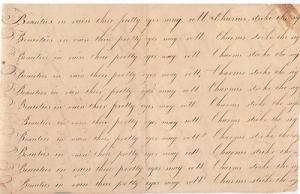 Beauties in vain their pretty eyes may roll. Charms strike the
Beauties in vain their pretty eyes may roll. Charms strike the
Beauties in vain their pretty eyes may roll. Charms strike the
Beauties in vain their pretty eyes may roll, Charms strike the
Beauties in vain their pretty eyes may roll. Charms strike the
Beauties in vain their pretty eyes may roll Charms strike the
Beauties in vain their pretty eyes may roll. Charms strike the
Beauties in vain their pretty eyes may roll. Charms strike the
Beauties in vain their pretty eyes may roll. Charms strike the
Beauties in vain their pretty eyes may roll. Charms strike the
Beauties in vain their pretty eyes may roll. Charms strike the